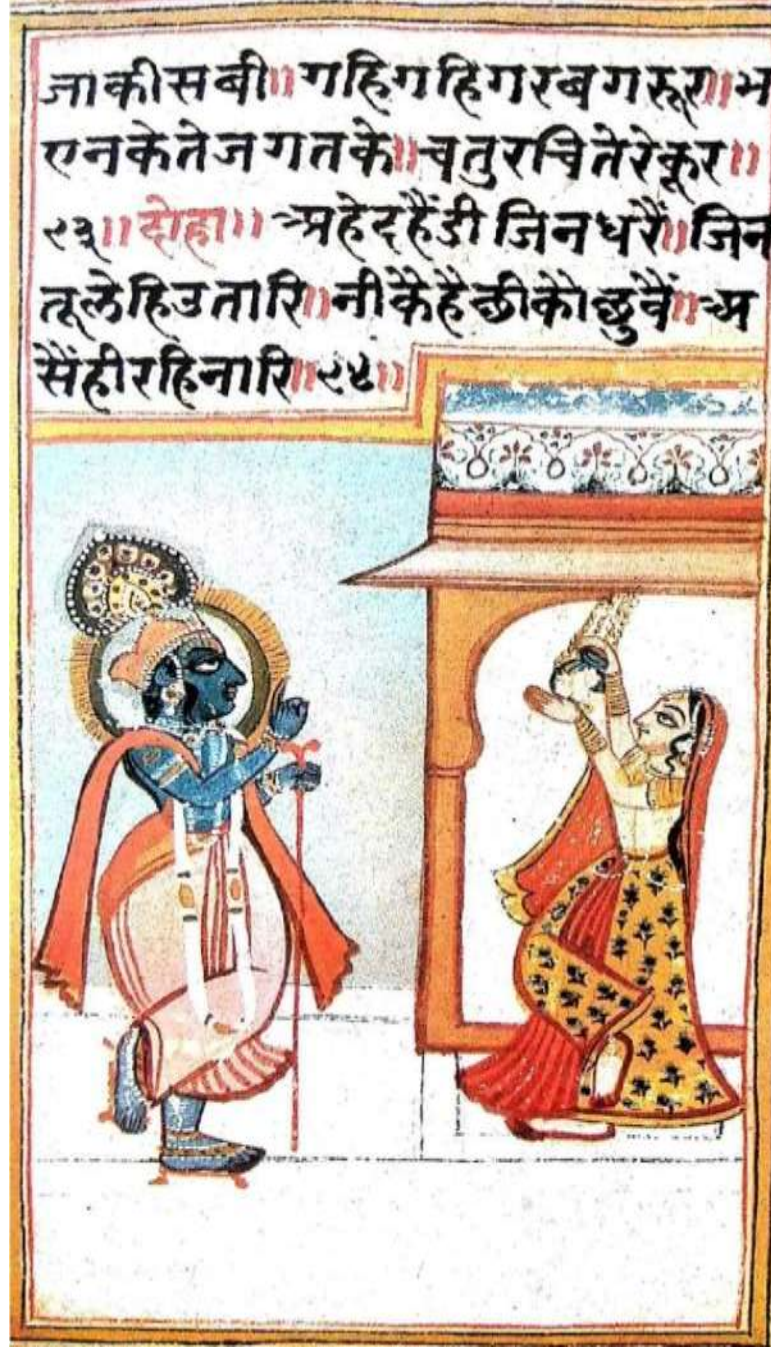 जाकीसबी॥गहिगहिगरबगरूर॥भ
एनकेतेजगतके॥चतुरचितेरेकूर॥
९३॥दोहा॥अहेदहैंडीजिनधरैं॥जिन
तूलेहिउतारि॥नीकैहैछीकोछुवैं॥अ
सैंहीरहिनारि॥९४॥